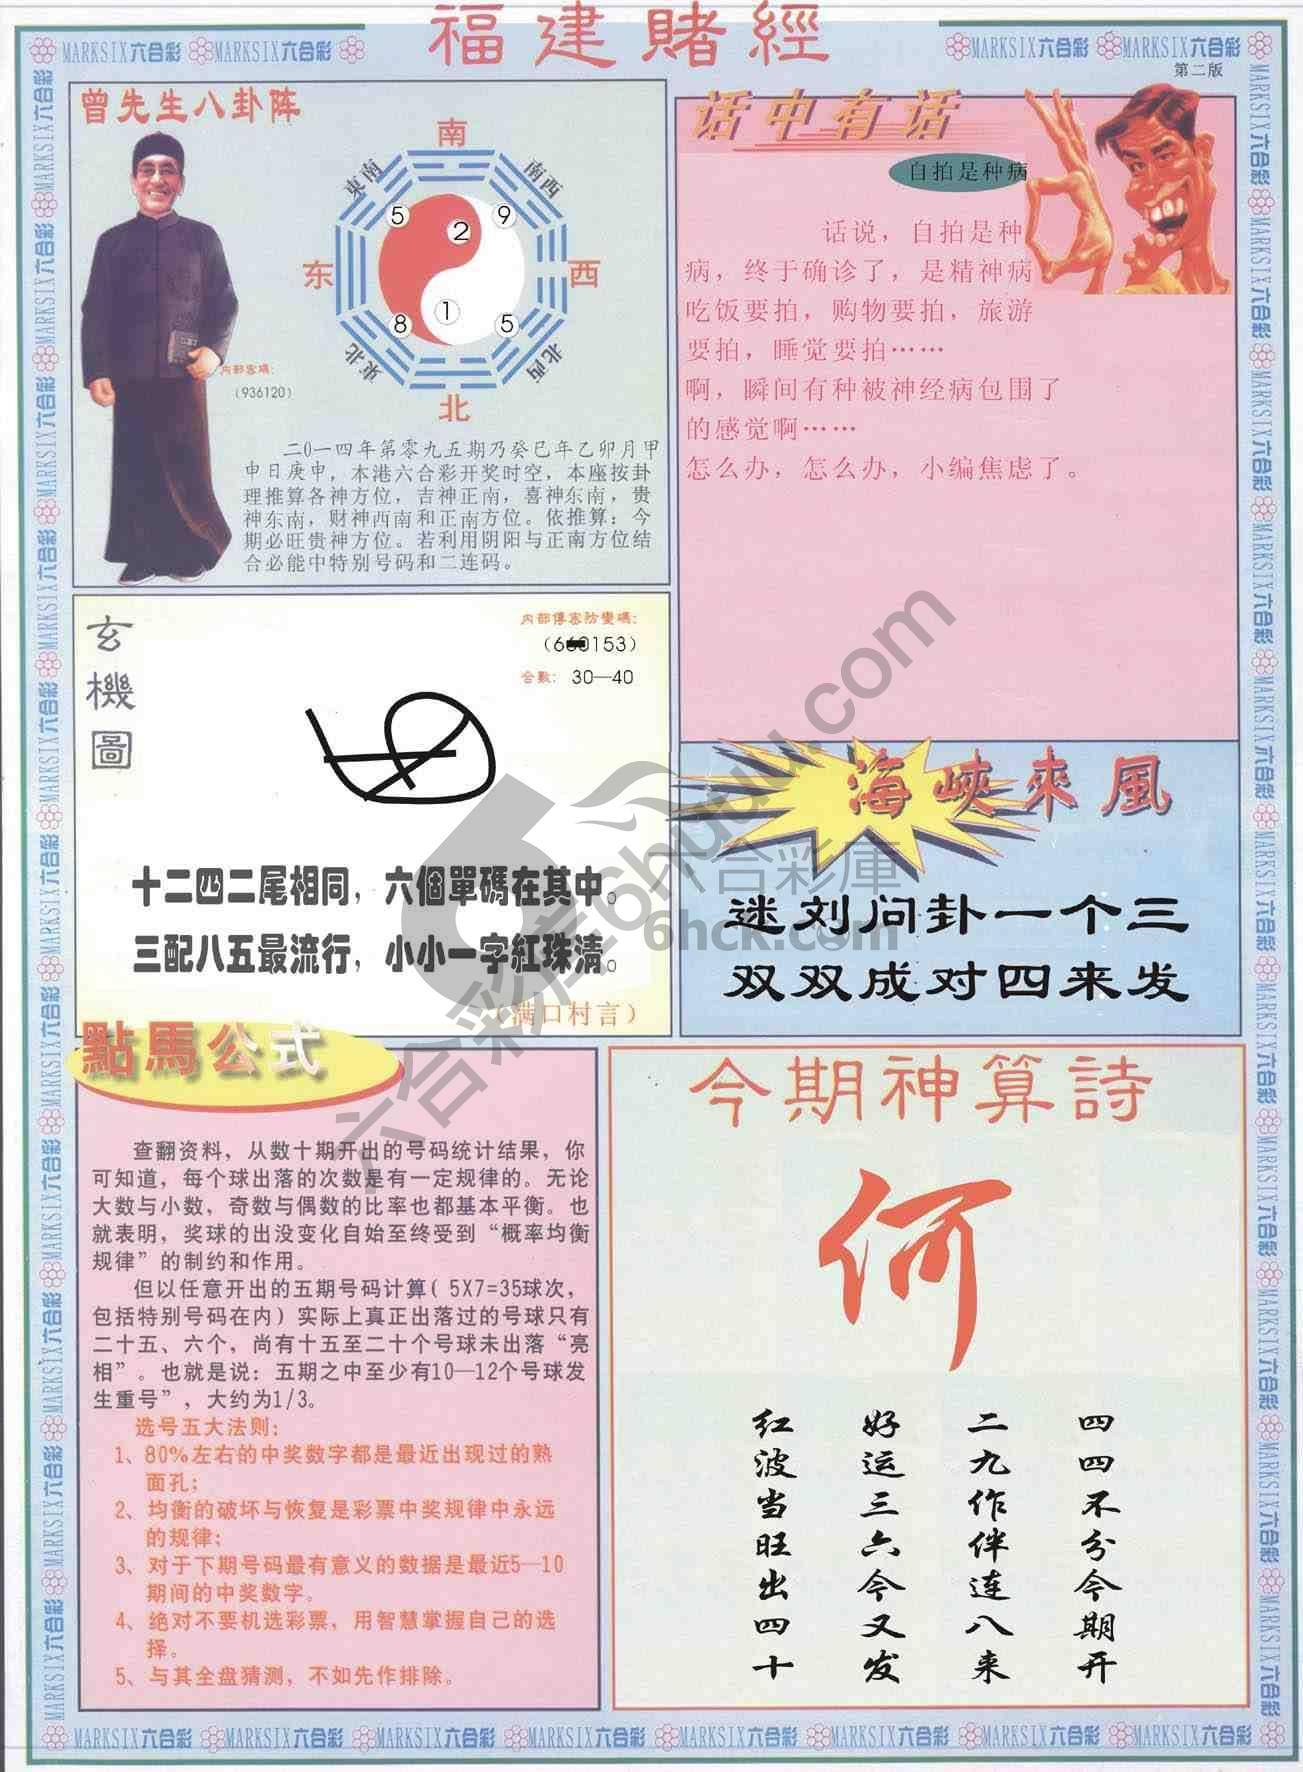 福建賭經
第二版
MARKSIX六合彩 MARKSIX六合彩
MARKSIX六合彩 MARKSIX六合彩
曾先生八卦阵
南
東南
南西
5
9
2
东
西
1
8
5
東北
北西
北
内部密碼：
(936120)
二0一四年第零九五期乃癸巳年乙卯月甲
申日庚申，本港六合彩开奖时空，本座按卦
理推算各神方位，吉神正南，喜神东南，贵
神东南，财神西南和正南方位。依推算：今
期必旺贵神方位。若利用阴阳与正南方位结
合必能中特别号码和二连码。
话中有话
自拍是种病
话说，自拍是种
病，终于确诊了，是精神病
吃饭要拍，购物要拍，旅游
要拍，睡觉要拍……
啊，瞬间有种被神经病包围了
的感觉啊……
怎么办，怎么办，小编焦虑了。
玄機圖
内部傳密防變碼：
(660153)
合數：30—40
十二四二尾相同，六個單碼在其中。
三配八五最流行，小小一字紅珠清。
（满口村言）
海峽來風
迷刘问卦一个三
双双成对四来发
點馬公式
查翻资料，从数十期开出的号码统计结果，你
可知道，每个球出落的次数是有一定规律的。无论
大数与小数，奇数与偶数的比率也都基本平衡。也
就表明，奖球的出没变化自始至终受到“概率均衡
规律”的制约和作用。
但以任意开出的五期号码计算（5X7=35球次，
包括特别号码在内）实际上真正出落过的号球只有
二十五、六个，尚有十五至二十个号球未出落“亮
相”。也就是说：五期之中至少有10—12个号球发
生重号”，大约为1/3。
选号五大法则：
1、80%左右的中奖数字都是最近出现过的熟
面孔；
2、均衡的破坏与恢复是彩票中奖规律中永远
的规律；
3、对于下期号码最有意义的数据是最近5—10
期间的中奖数字。
4、绝对不要机选彩票，用智慧掌握自己的选
择。
5、与其全盘猜测，不如先作排除。
今期神算詩
何
四四不分今期开
二九作伴连八来
好运三六今又发
红波当旺出四十
MARKSIX六合彩 MARKSIX六合彩 MARKSIX六合彩 MARKSIX六合彩 MARKSIX六合彩 MARKSIX六合彩 MARKSIX六合彩 MARKSIX六合彩
六合彩库6hhuuu.com
六合彩庫
6hck.com